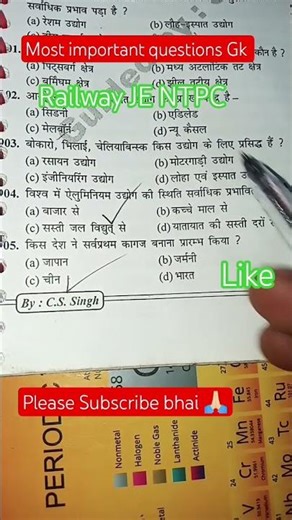 सर्वाधिक प्रभाव पड़ा है ?
(a) रेशम उद्योग (b) लौह-इस्पात उद्योग
Most important questions Gk
कौन है ?
(a) पिट्सबर्ग क्षेत्र (b) मध्य अटलांटिक तट क्षेत्र
(c) बर्मिंघम क्षेत्र (d) झील तटीय क्षेत्र
RailwayJE NTPC
(a) सिडनी (b) एडिलेड
(c) मेलबोर्न (d) न्यू कैसल
903. बोकारो, भिलाई, चेलियाबिन्स्क किस उद्योग के लिए प्रसिद्ध हैं ?
(a) रसायन उद्योग (b) मोटरगाड़ी उद्योग
(c) इंजीनियरिंग उद्योग (d) लोहा एवं इस्पात
904. विश्व में ऐलुमिनियम उद्योग की स्थिति सर्वाधिक
(a) बाजार से (b) कच्चे माल से
(c) सस्ती जल विद्युत् से (d) यातायात की सस्ती दरों
05. किस देश ने सर्वप्रथम कागज बनाना प्रारम्भ किया ?
(a) जापान (b) जर्मनी
(c) चीन (d) भारत
Like
By : C.S. Singh
Please Subscribe bhai 🙏🏻
PERIODIC
Nonmetal
Halogen
Noble Gas
Lanthanide
Actinide
24 Cr
25 Mn
Fe
42 Mo
Tc
Ru